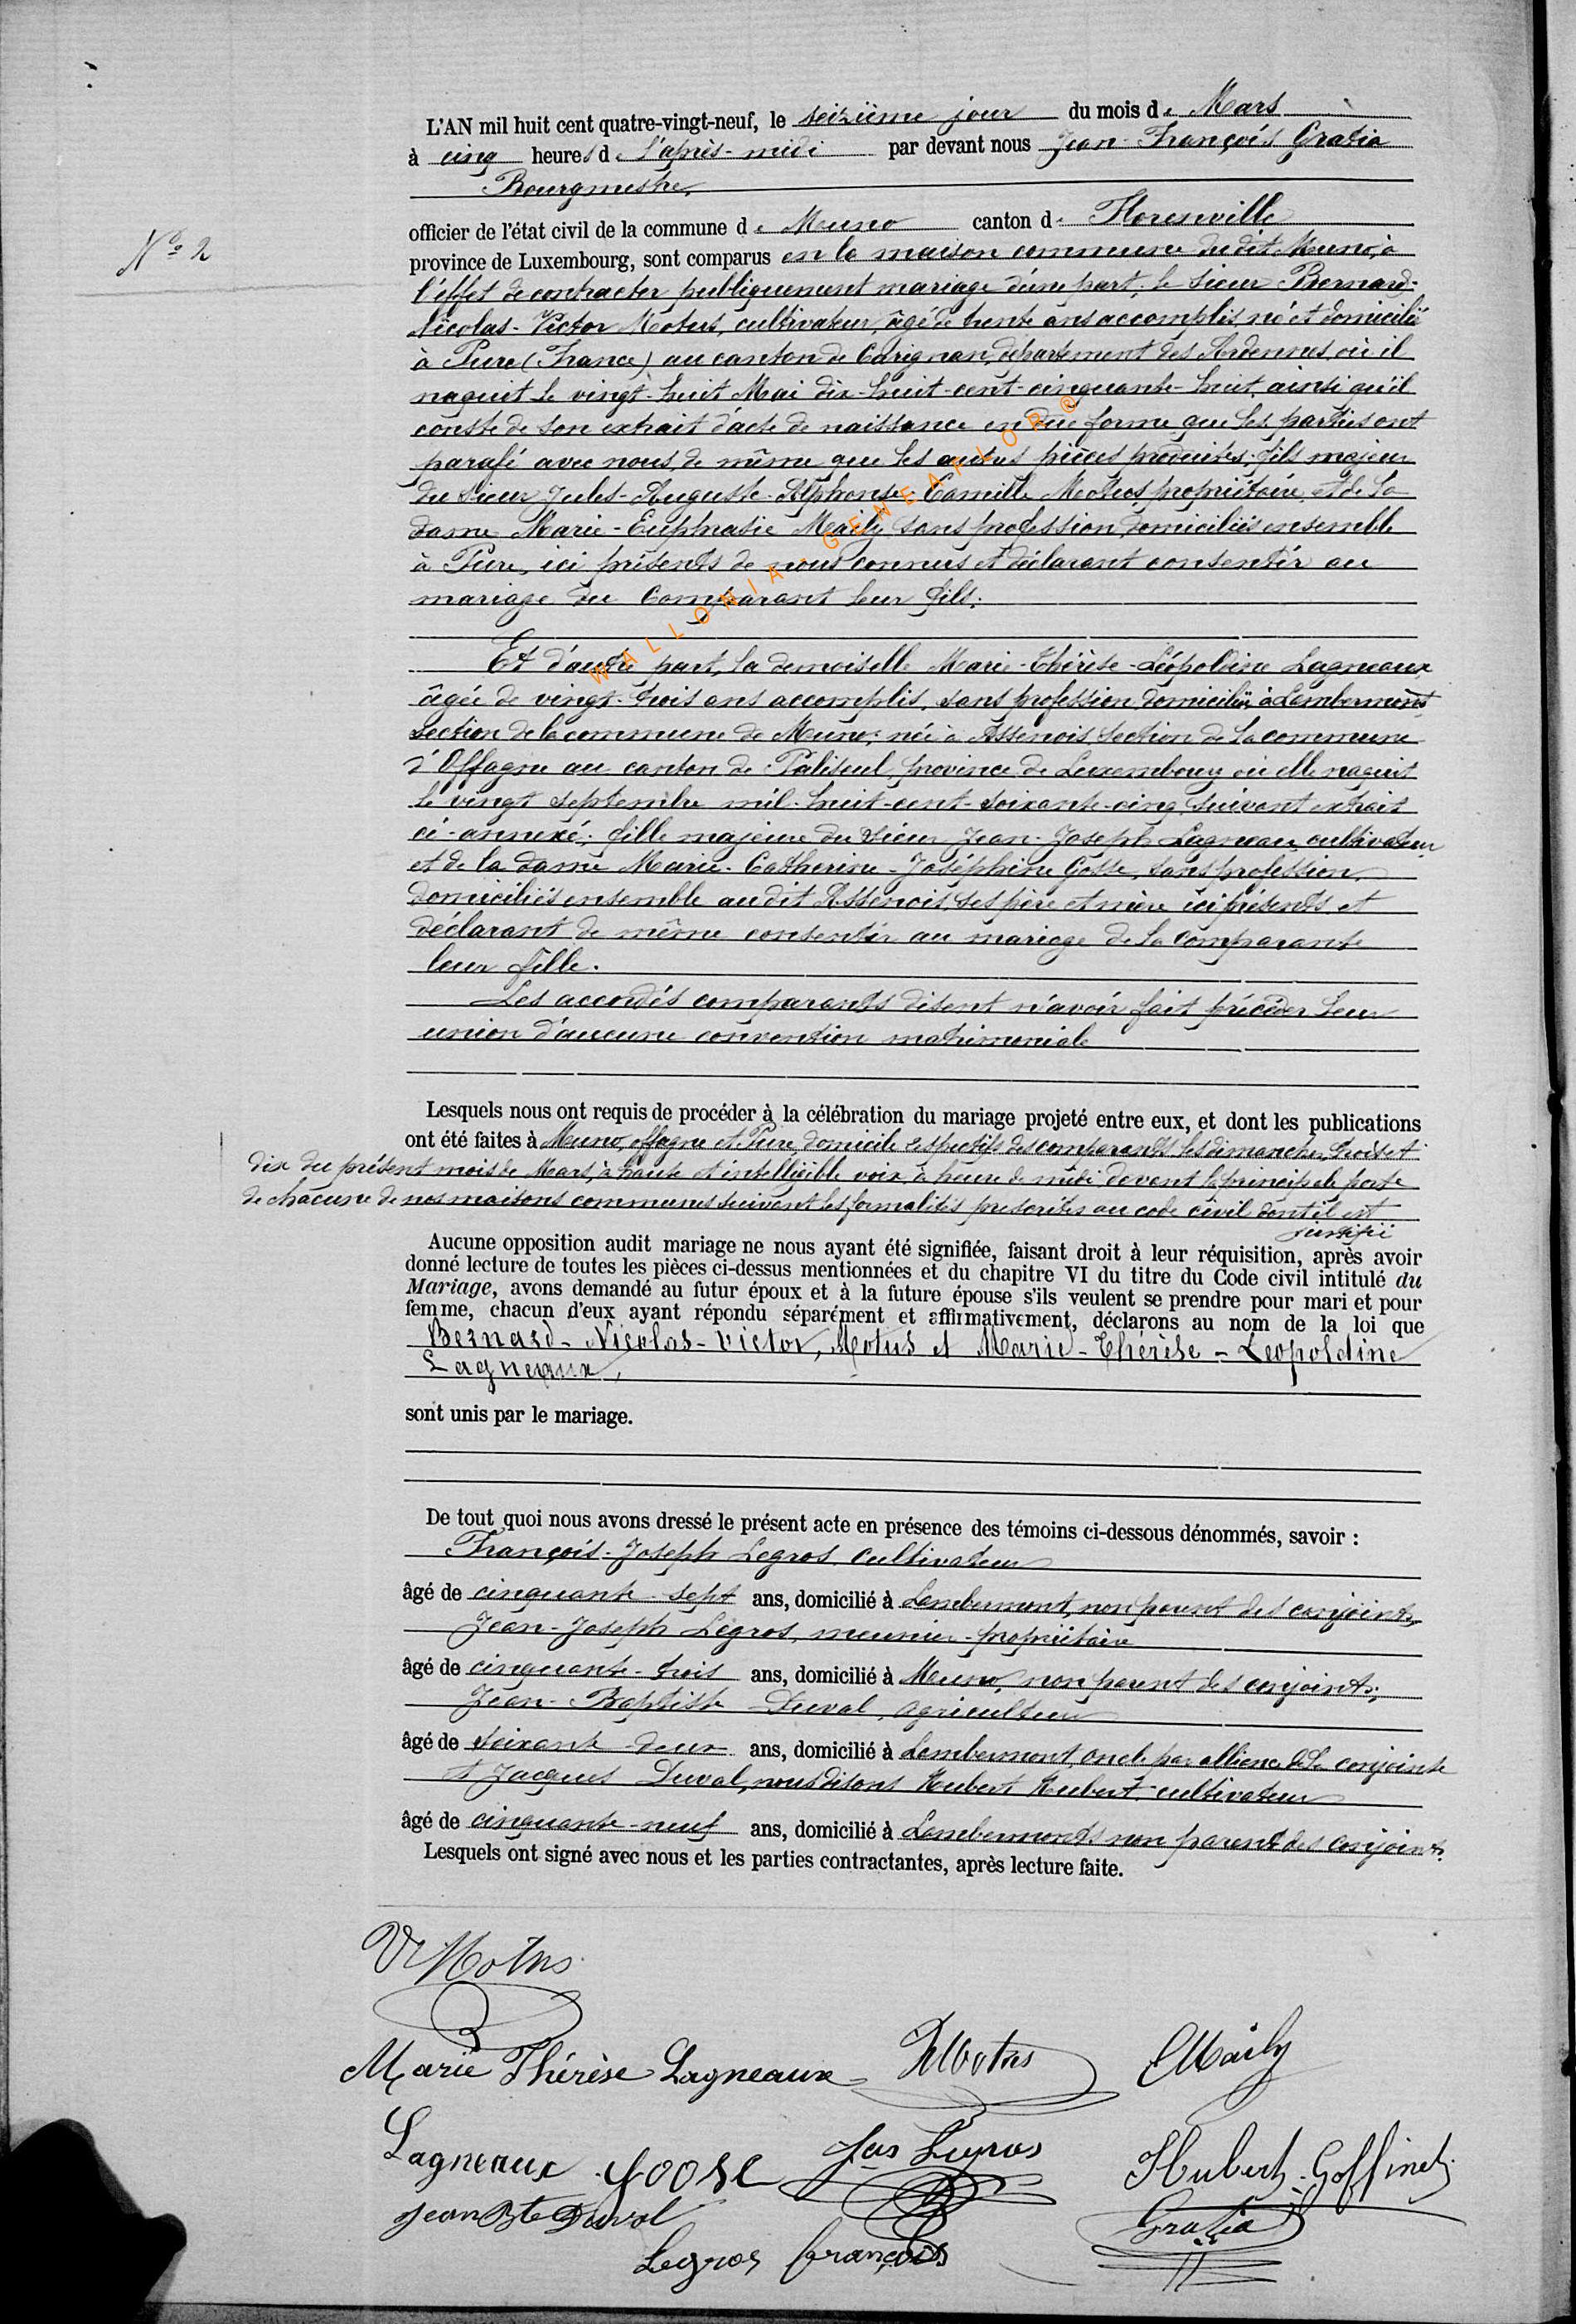 L'AN mil huit cent quatre-vingt-neuf, le seizième jour du mois de Mars
à cinq heures de l'après-midi par devant nous Jean-François Gratia
Bourgmestre,
officier de l'état civil de la commune de Muno canton de Florenville
N° 2
province de Luxembourg, sont comparus en la maison commune du dit Muno, à
l'effet de contracter publiquement mariage d'une part; le sieur Bernard-
Nicolas-Victor Motus, cultivateur, âgé de trente ans accomplis, né et domicilié
à Pure (France) au canton de Carignan, département des Ardennes, où il
naquit le vingt-huit Mai dix-huit-cent-cinquante-huit, ainsi qu'il
conste de son extrait d'acte de naissance en due forme que les parties ont
parafé avec nous, de même que les autres pièces produites; fils majeur
du sieur Jules-Auguste-Alphonse-Camille Motus, propriétaire et de la
dame Marie-Euphrasie Maily, sans profession, domiciliés ensemble
à Pure, ici présents de nous connus et déclarant consentir au
mariage du Comparant leur fils;
WALLONIA-GENEAFLOR®
Et d'autre part, la demoiselle Marie-Thérèse-Léopoldine Lagneaux,
âgée de vingt-trois ans accomplis, sans profession, domiciliée à Lambermont
section de la commune de Muno; née à Assenois, section de la commune
d'Offagne au canton de Paliseul, province de Luxembourg où elle naquit
le vingt septembre mil-huit-cent-soixante-cinq, suivant extrait
ci-annexé; fille majeure du sieur Jean-Joseph Lagneau, cultivateur
et de la dame Marie-Catherine-Joséphine Gosse, sans profession,
domiciliés ensemble au dit Assenois, ses père et mère ici présents et
déclarant de même consentir au mariage de la Comparante
leur fille.
Les accordés comparants disent n'avoir fait précéder leur
union d'aucune convention matrimoniale
Lesquels nous ont requis de procéder à la célébration du mariage projeté entre eux, et dont les publications
ont été faites à Muno, offagne et Pure, domicile respectifs des comparants les dimanches, trois et
dix du présent mois de Mars, à haute et intelligible voix, à heure de midi devant la principale porte
de chacune de nos maisons communes suivant les formalités prescrites au code civil dont il est
justifié
Aucune opposition audit mariage ne nous ayant été signifiée, faisant droit à leur réquisition, après avoir
donné lecture de toutes les pièces ci-dessus mentionnées et du chapitre VI du titre du Code civil intitulé du
Mariage, avons demandé au futur époux et à la future épouse s'ils veulent se prendre pour mari et pour
femme, chacun d'eux ayant répondu séparément et affirmativement, déclarons au nom de la loi que
Bernard-Nicolas-Victor, Motus et Marie-Thérèse-Leopoldine
Lagneaux,
sont unis par le mariage.
De tout quoi nous avons dressé le présent acte en présence des témoins ci-dessous dénommés, savoir :
François-Joseph Legros, cultivateur
âgé de cinquante-sept ans, domicilié à Lambermont, non parent des conjoints,
Jean-Joseph Legros, meunier-propriétaire
âgé de cinquante-trois ans, domicilié à Muno, non parent des conjoints;
Jean-Baptiste Duval, agriculteur
âgé de soixante-deux ans, domicilié à Lambermont, oncle par alliance de la conjointe
et Jacques Duval, nous disons Hubert Hubert, cultivateur
âgé de cinquante-neuf ans, domicilié à Lambermont non parent des conjoints.
Lesquels ont signé avec nous et les parties contractantes, après lecture faite.
Vr Motus
Marie Thérèse Lagneaux Motus EMaily
Lagneaux goose Jos Legros Hubert-Goffinet
Jean Bte Duval Gratia
Legros françois